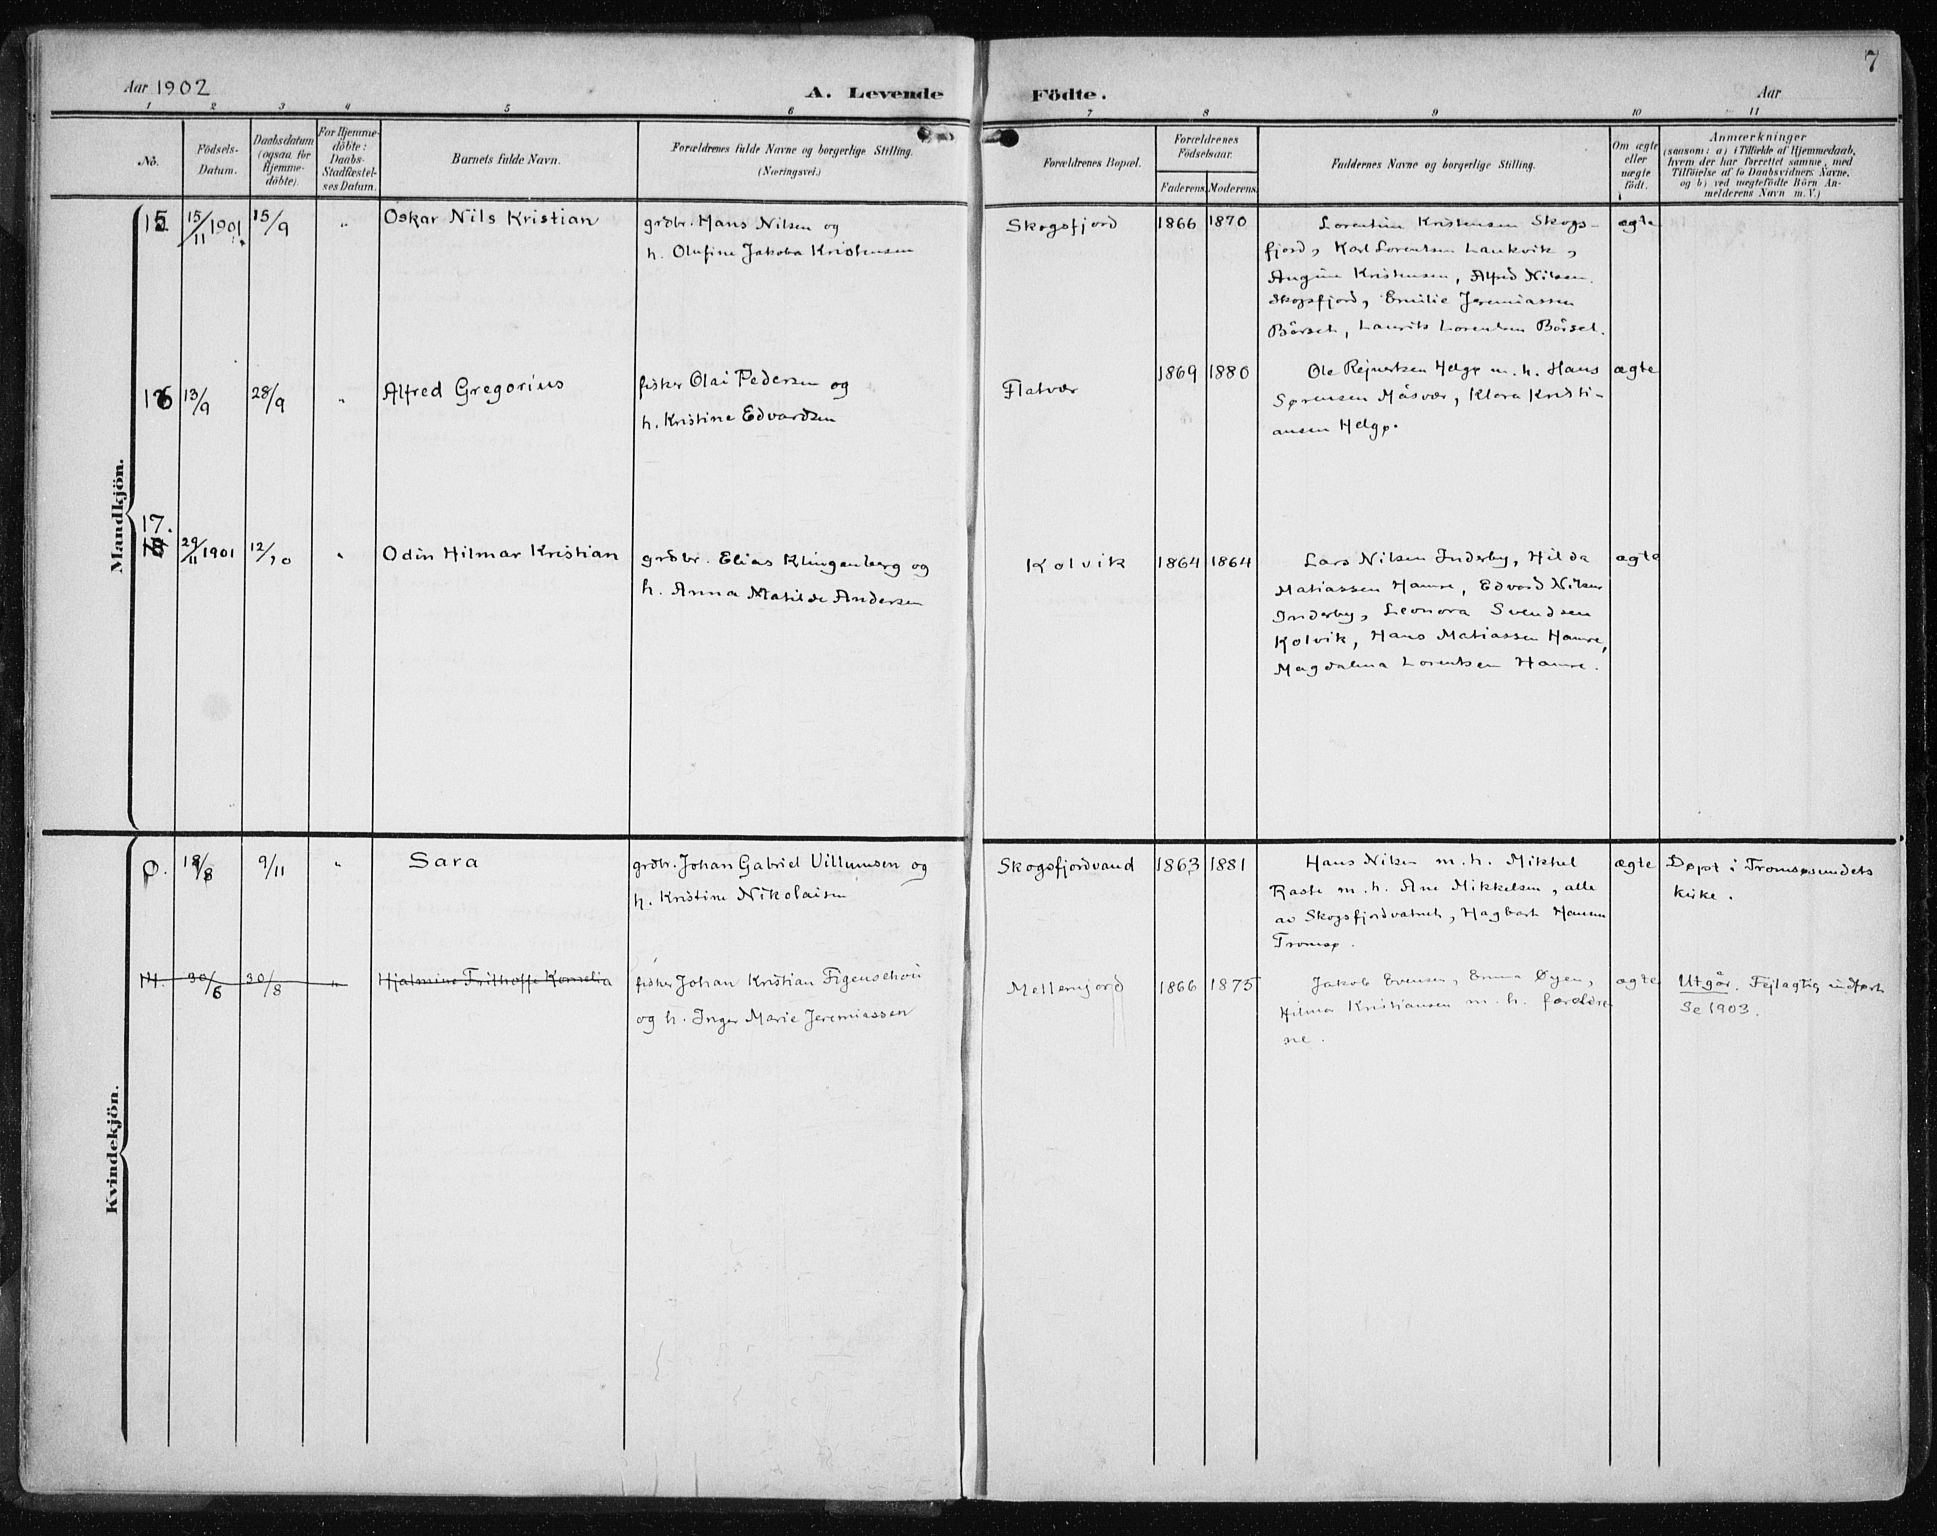 7
Aar 1902
A. Levende
Födte.
Aar
1 2 3 4 5 6 7 8 9 10 11
No.
Födsels-
Datum.
Daabsdatum
(ogsaa for
Hjemme-
döbte).
For Hjemme-
döbte:
Daabs-
Stadfæstel-
ses Datum.
Barnets fulde Navn.
Forældrenes fulde Navne og borgerlige Stilling.
(Næringsvei.)
Forældrenes Bopæl.
Forældrenes
Födselsaar.
Faderens.
Moderens.
Faddernes Navne og borgerlige Stilling.
Om ægte
eller
uægte
födt.
Anmærkninger
(saasom: a) i Tilfælde af Hjemmedaab,
hvem der har forrettet samme, med
Tilföielse af to Daabsvidners Navne,
og b) ved uægtefödte Börn An-
melderens Navn m. V.)
Mandkjön.
15 15/11 1901 15/9 " Oskar Nils Kristian
grdbr. Hans Nilsen og
h. Olufine Jakoba Kristensen
Skogsfjord 1866 1870
Lorentine Kristensen Skogs-
fjord, Karl Lorentsen Lankvik,
Angine Kristensen, Alfred Nilsen
Skogsfjord, Emilie Jeremiassen
Börset, Laurits Lorentsen Börset.
ægte
16 13/9 28/9 " Alfred Gregorius
fisker Olai Pedersen og
h. Kristine Edvardsen
Flatvær 1869 1880
Ole Rejnertsen Helgø m. h. Hans
Sørensen Måsvær, Klara Kristi-
ansen Helgø.
ægte
17.
29/11 1901 12/10 " Odin Hilmar Kristian
grdbr. Elias Klingenberg og
h. Anna Matilde Andersen
Kolvik 1864 1864
Lars Nilsen Inderby, Hilda
Matiassen Hamre, Edvard Nilsen
Inderby, Leonora Svendsen
Kolvik, Hans Matiassen Hamre,
Magdalena Lorentsen Hamre.
ægte
Kvindekjön.
18/8 9/11 " Sara
grdbr. Johan Gabriel Villumsen og
h. Kristine Nikolaisen
Skogsfjordvand 1863 1881
Hans Nilsen m. h. Mikkel
Raste m. h. Ane Mikkelsen, alle
av Skogsfjordvatnet, Hagbart Hansen
Tromsø.
ægte
Døpt i Tromsøsundets
kirke.
30/6 30/8 " Hjalmine Frithoffe Kornelia
fisker Johan Kristian Figenschou
og h. Inger Marie Jeremiassen
Mellemjord 1866 1875
Jakob Evensen, Emma Øyen,
Hilmar Kristiansen m. h. forældre-
ne.
ægte
Utgår. Fejlagtig indført
Se 1903.